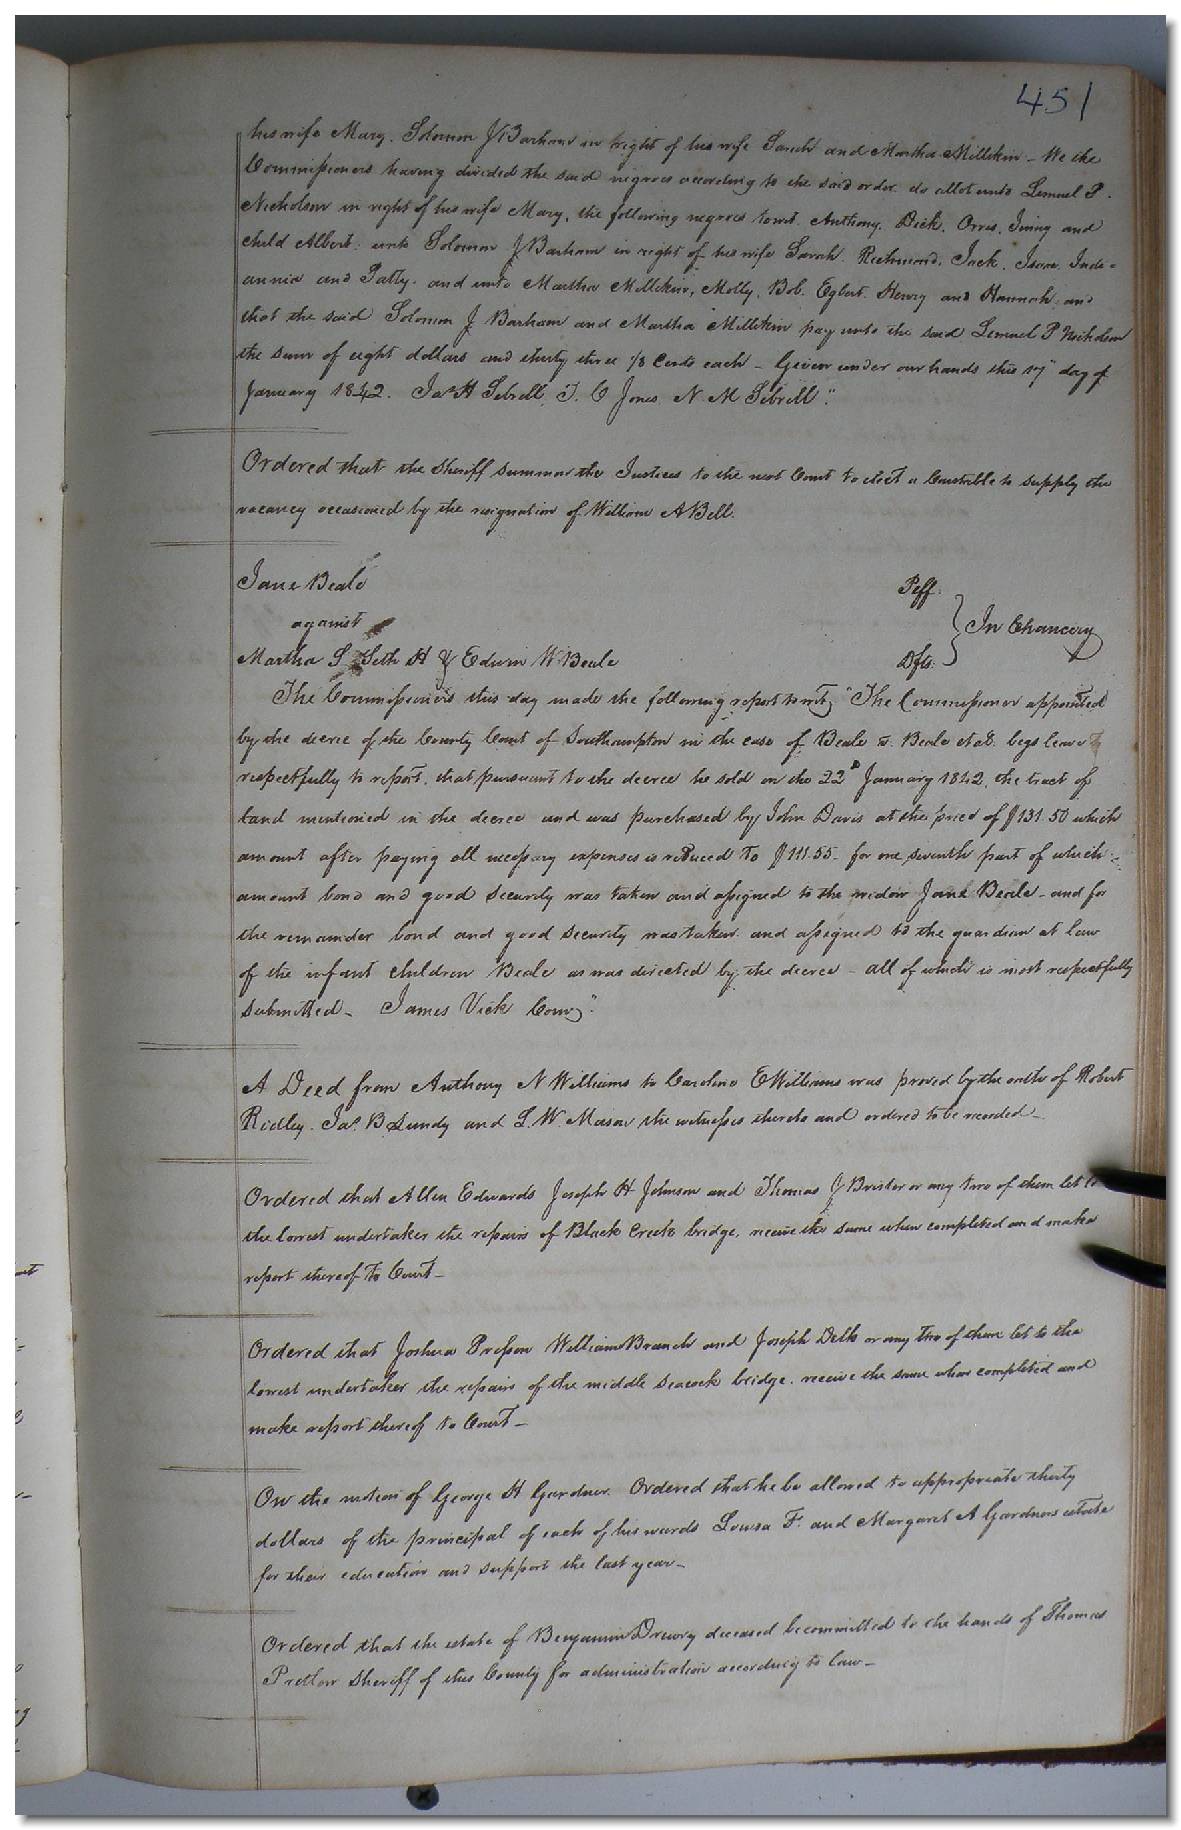 451
his wife Mary. Solomon J Barham in right of his wife Sarah and Martha Millikin – We the
Commissioners having divided the said negroes according to the said order do allot unto Lemuel P.
Nicholson in right of his wife Mary, the following negroes towit. Anthony. Dick. Orris. Jinny and
child Albert: unto Solomon J Barham in right of his wife Sarah. Richmond, Jack. Isom. Inde=
annia and Patty. and unto Martha Millikin, Molly. Bob. Egbert. Henry and Hannah: and
that the said Solomon J Barham and Martha Millikin pay unto the said Lemuel P Nicholson
the sum of eight dollars and thirty three 1/3 Cents each – Given under our hands this 17" day of
January 1842. Jas H Sebrell, J. C Jones N. M Sebrell".
Ordered that the Sheriff summon the Justices to the next Court to elect a Constable to supply the
vacancy occasioned by the resignation of William A Bell.
Jane Beale Plff.
against In Chancery
Martha S Seth H & Edwin W Beale Dfts.
The Commissioners this day made the following report towit, "The Commissioner appointed
by the decree of the County Court of Southampton in the case of Beale vs. Beale et als. begs leave to
respectfully to report, that pursuant to the decree he sold on the 22d January 1842, the tract of
land mentioned in the decree and was purchased by John Davis at the price of $131.50 which
amount after paying all necessary expenses is reduced to $111.55. for one seventh part of which
amount bond and good security was taken and assigned to the widow Jane Beale – and for
the remainder bond and good security was taken and assigned to the guardian at law
of the infant children Beale as was directed by the decree – all of which is most respectfully
submitted – James Vick Comr".
A Deed from Anthony N Williams to Caroline E Williams was proved by the oaths of Robert
Ridley. Jas. B Lundy and L. W. Mason the witnesses thereto and ordered to be recorded –
Ordered that Allen Edwards Joseph H Johnson and Thomas J Brister or any two of them let to
the lowest undertaker the repairs of Black Creek bridge, receive the same when completed and make
report thereof to Court –
Ordered that Joshua Presson William Branch and Joseph Delk or any two of them let to the
lowest undertaker the repairs of the middle Seacock bridge. receive the same when completed and
make report thereof to Court –
On the motion of George H Gardner. Ordered that he be allowed to appropriate thirty
dollars of the principal of each of his wards Louisa F. and Margaret A Gardners estate
for their education and support the last year –
Ordered that the estate of Benjamin Drewry deceased be committed to the hands of Thomas
Pretlow Sheriff of this County for administration according to law –